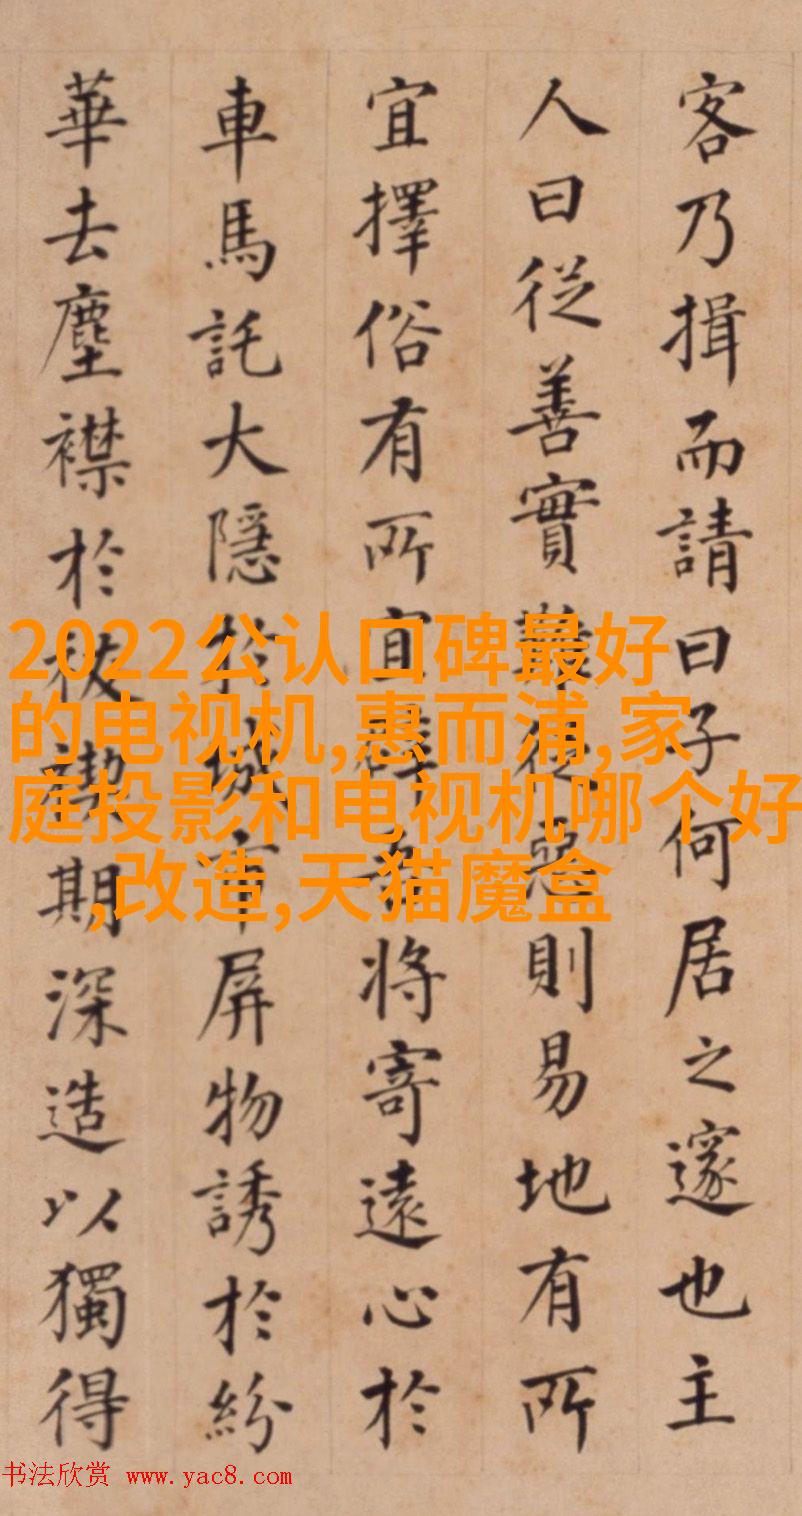 客乃揖而請曰子何居之邃也主
人曰從善實難從惡則易地有所
宜擇俗有所宜吾將寄遠心於
車馬託大隱於城市屏物誘於紛
華去塵襟於祓禊期深造以獨得
2022公认口碑最好
的电视机,惠而浦,家
庭投影和电视机哪个好
,改造,天猫魔盒
书法欣赏 www.yac8.com